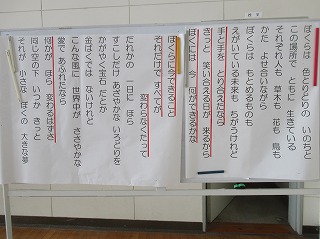 ぼくらは 色とりどりの いのちと
この場所で ともに 生きている
それぞれ人も 草木も 花も 鳥も
かた よせ合いながら
ぼくらは もとめるものも
えがいている未来も ちがうけれど
手と手を とり合えたなら
きっと 笑い合える日が 来るから
ぼくには 今 何ができるかな
ぼくらに今できること
それだけで すべてが
変わらなくたって
だれかの 一日に ほら
すこしだけ あざやかな いろどりを
かがやく宝石 だとか
金ぱくでは ないけれど
こんな風に 世界中が ささやかな
愛で あふれたなら
何かが ほら 変わるはずさ
同じ空の下 いつか きっと
それが 小さな ぼくの 大きな夢